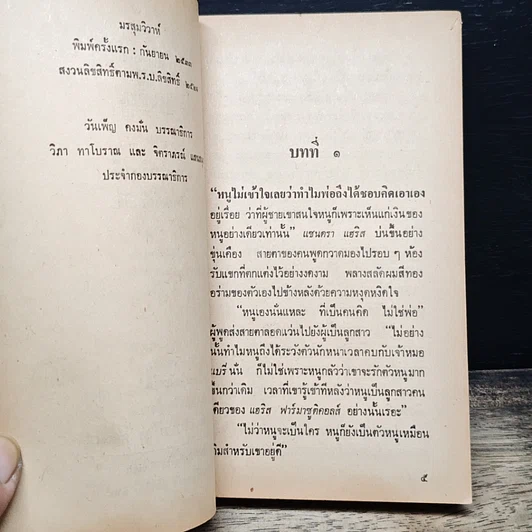 มรสุมวิวาห์
พิมพ์ครั้งแรก : กันยายน ๒๕๓๓
สงวนลิขสิทธิ์ตามพ.ร.บ.ลิขสิทธิ์ ๒๕๒๑
วันเพ็ญ คงมั่น บรรณาธิการ
วิภา ทาโบราณ และ จิตราภรณ์
ประจำกองบรรณาธิการ
บทที่ ๑
"หนูไม่เข้าใจเลยว่าทำไมพ่อถึงได้ชอบคิดเอาเอง
อยู่เรื่อย ว่าที่ผู้ชายเขาสนใจหนูก็เพราะเห็นแก่เงินของ
หนูอย่างเดียวเท่านั้น" แซนดรา แฮริส บ่นขึ้นอย่าง
ขุ่นเคือง สายตาของคนพูดกวาดมองไปรอบ ๆ ห้อง
รับแขกที่ตกแต่งไว้อย่างงดงาม พลางสลัดผมสีทอง
อร่ามของตัวเองไปข้างหลังด้วยความหงุดหงิดใจ
"หนูเองนั่นแหละ ที่เป็นคนคิด ไม่ใช่พ่อ"
ผู้พูดส่งสายตาลอดแว่นไปยังผู้เป็นลูกสาว "ไม่อย่าง
นั้นทำไมหนูถึงได้ระวังตัวนักหนาเวลาคบกับเจ้าหมอ
แบรี่ นั่น ก็ไม่ใช่เพราะหนูกลัวว่าเขาจะรักตัวหนูมาก
ขึ้นกว่าเดิม เวลาที่เขารู้เข้าทีหลังว่าหนูเป็นลูกสาวคน
เดียวของ แฮริส ฟาร์มาซูติคอลส์ อย่างนั้นเรอะ"
"ไม่ว่าหนูจะเป็นใคร หนูก็ยังเป็นตัวหนูเหมือน
เดิมสำหรับเขาอยู่ดี"
๕